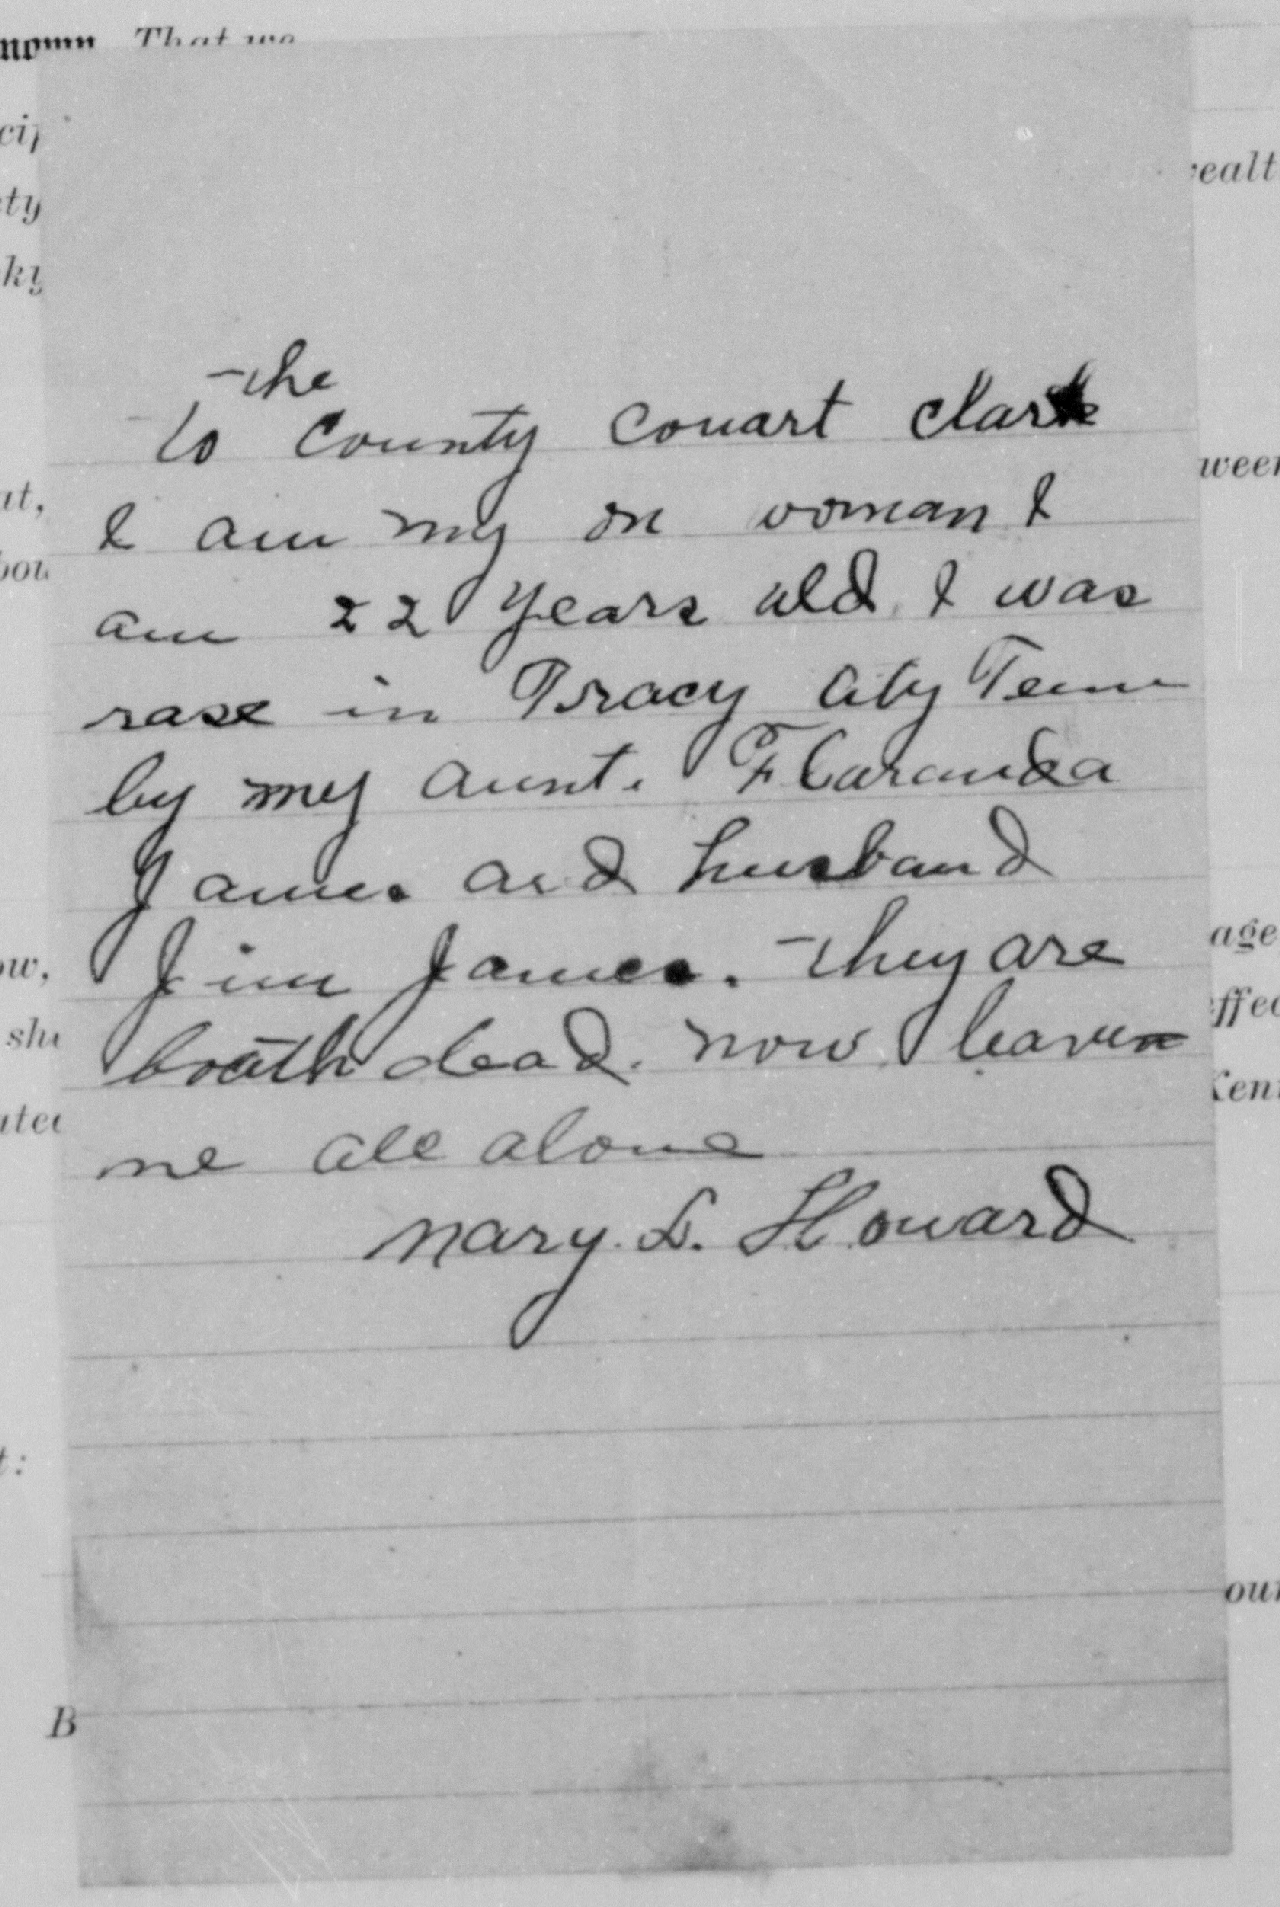 nown, That we
cip
ety
ky
wealt
the
to County Couart Clark
I am my on woman I
at,
ween
am 22 years old. I was
bou
rase in Tracy City Tenn
by my aunt. Flaranda
James and husband
Jim James. They are
ow,
age
boath dead. now leaven
she
effec
me all alone
ated
Kent
Mary. L. Howard
t:
our
B